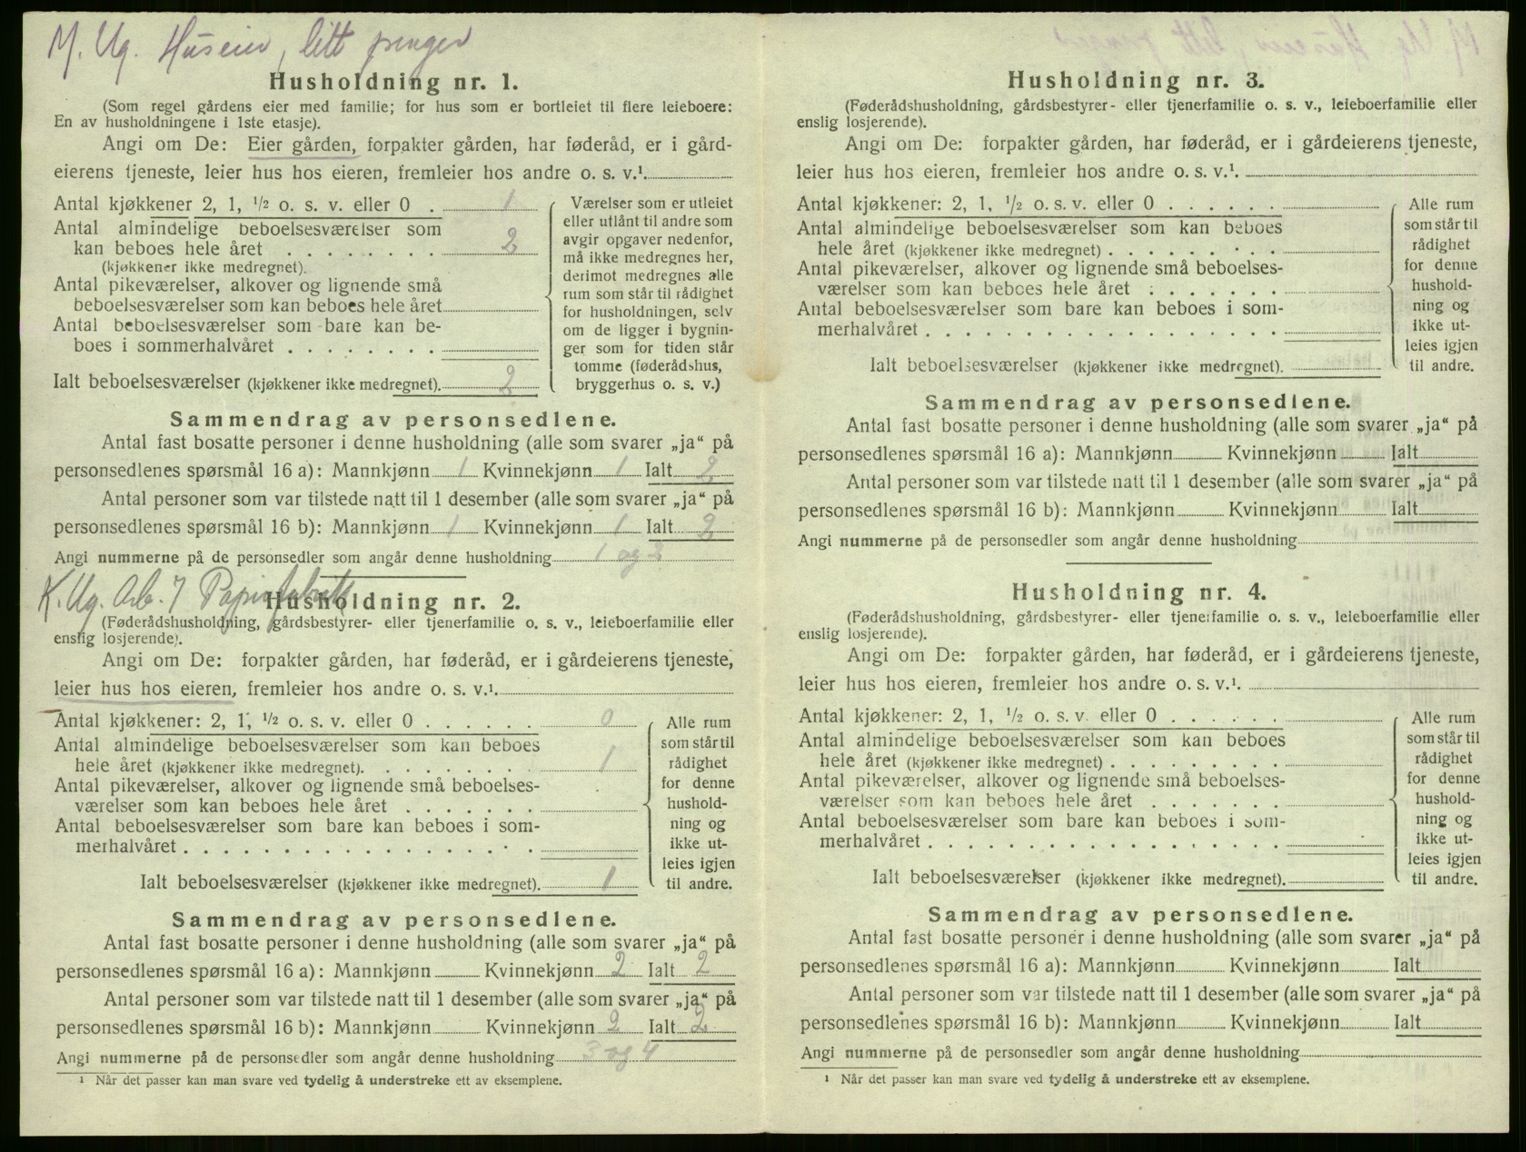 M. Ug. Huseier, litt penger
Husholdning nr. 1.
(Som regel gårdens eier med familie; for hus som er bortleiet til flere leieboere:
En av husholdningene i 1ste etasje).
Angi om De: Eier gården, forpakter gården, har føderåd, er i gård-
eierens tjeneste, leier hus hos eieren, fremleier hos andre o. s. v.¹.
Antal kjøkkener 2, 1, ½ o. s. v. eller 0 . 1
Antal almindelige beboelsesværelser som
kan beboes hele året . . . . . . . . 2
(kjøkkener ikke medregnet).
Antal pikeværelser, alkover og lignende små
beboelsesværelser som kan beboes hele året
Antal beboelsesværelser som bare kan be-
boes i sommerhalvåret . . . . . . . .
Ialt beboelsesværelser (kjøkkener ikke medregnet). 2
Værelser som er utleiet
eller utlånt til andre som
avgir opgaver nedenfor,
må ikke medregnes her,
derimot medregnes alle
rum som står til rådighet
for husholdningen, selv
om de ligger i bygnin-
ger som for tiden står
tomme (føderådshus,
bryggerhus o. s. v.)
Sammendrag av personsedlene.
Antal fast bosatte personer i denne husholdning (alle som svarer „ja“ på
personsedlenes spørsmål 16 a): Mannkjønn 1 Kvinnekjønn 1 Ialt 2
Antal personer som var tilstede natt til 1 desember (alle som svarer „ja“ på
personsedlenes spørsmål 16 b): Mannkjønn 1 Kvinnekjønn 1 Ialt 2
Angi nummerne på de personsedler som angår denne husholdning 1 og 2
K. Ug. Arb. i Papirfabrikk
Husholdning nr. 2.
(Føderådshusholdning, gårdsbestyrer- eller tjenerfamilie o. s. v., leieboerfamilie eller
enslig losjerende).
Angi om De: forpakter gården, har føderåd, er i gårdeierens tjeneste,
leier hus hos eieren, fremleier hos andre o. s. v.¹.
Antal kjøkkener: 2, 1, ½ o. s. v. eller 0 . . . . . . 0
Antal almindelige beboelsesværelser som kan beboes
hele året (kjøkkener ikke medregnet). . . . . . . . . 1
Antal pikeværelser, alkover og lignende små beboelses-
værelser som kan beboes hele året . . . . . . .
Antal beboelsesværelser som bare kan beboes i som-
merhalvåret . . . . . . . . . . . . . . . .
Ialt beboelsesværelser (kjøkkener ikke medregnet). 1
Alle rum
som står til
rådighet
for denne
hushold-
ning og
ikke ut-
leies igjen
til andre.
Sammendrag av personsedlene.
Antal fast bosatte personer i denne husholdning (alle som svarer „ja“ på
personsedlenes spørsmål 16 a): Mannkjønn Kvinnekjønn 2 Ialt 2
Antal personer som var tilstede natt til 1 desember (alle som svarer „ja“ på
personsedlenes spørsmål 16 b): Mannkjønn Kvinnekjønn 2 Ialt 2
Angi nummerne på de personsedler som angår denne husholdning 3 og 4
¹ Når det passer kan man svare ved tydelig å understreke ett av eksemplene.
Husholdning nr. 3.
(Føderådshusholdning, gårdsbestyrer- eller tjenerfamilie o. s. v., leieboerfamilie eller
enslig losjerende).
Angi om De: forpakter gården, har føderåd, er i gårdeierens tjeneste,
leier hus hos eieren, fremleier hos andre o. s. v.¹.
Antal kjøkkener: 2, 1, ½ o. s. v. eller 0 . . . . . .
Antal almindelige beboelsesværelser som kan beboes
hele året (kjøkkener ikke medregnet) . . . . . . . .
Antal pikeværelser, alkover og lignende små beboelses-
værelser som kan beboes hele året . . . . . . .
Antal beboelsesværelser som bare kan beboes i som-
merhalvåret . . . . . . . . . . . . . . . .
Ialt beboelsesværelser (kjøkkener ikke medregnet).
Alle rum
som står til
rådighet
for denne
hushold-
ning og
ikke ut-
leies igjen
til andre.
Sammendrag av personsedlene.
Antal fast bosatte personer i denne husholdning (alle som svarer „ja“ på
personsedlenes spørsmål 16 a): Mannkjønn Kvinnekjønn Ialt
Antal personer som var tilstede natt til 1 desember (alle som svarer „ja“ på
personsedlenes spørsmål 16 b): Mannkjønn Kvinnekjønn Ialt
Angi nummerne på de personsedler som angår denne husholdning
Husholdning nr. 4.
(Føderådshusholdning, gårdsbestyrer- eller tjenerfamilie o. s. v., leieboerfamilie eller
enslig losjerende).
Angi om De: forpakter gården, har føderåd, er i gårdeierens tjeneste,
leier hus hos eieren, fremleier hos andre o. s. v.¹.
Antal kjøkkener: 2, 1, ½ o. s. v. eller 0 . . . . . .
Antal almindelige beboelsesværelser som kan beboes
hele året (kjøkkener ikke medregnet) . . . . . . . .
Antal pikeværelser, alkover og lignende små beboelses-
værelser som kan beboes hele året . . . . . . .
Antal beboelsesværelser som bare kan beboes i som-
merhalvåret . . . . . . . . . . . . . . . .
Ialt beboelsesværelser (kjøkkener ikke medregnet).
Alle rum
som står til
rådighet
for denne
hushold-
ning og
ikke ut-
leies igjen
til andre.
Sammendrag av personsedlene.
Antal fast bosatte personer i denne husholdning (alle som svarer „ja“ på
personsedlenes spørsmål 16 a): Mannkjønn Kvinnekjønn Ialt
Antal personer som var tilstede natt til 1 desember (alle som svarer „ja“ på
personsedlenes spørsmål 16 b): Mannkjønn Kvinnekjønn Ialt
Angi nummerne på de personsedler som angår denne husholdning
¹ Når det passer kan man svare ved tydelig å understreke ett av eksemplene.